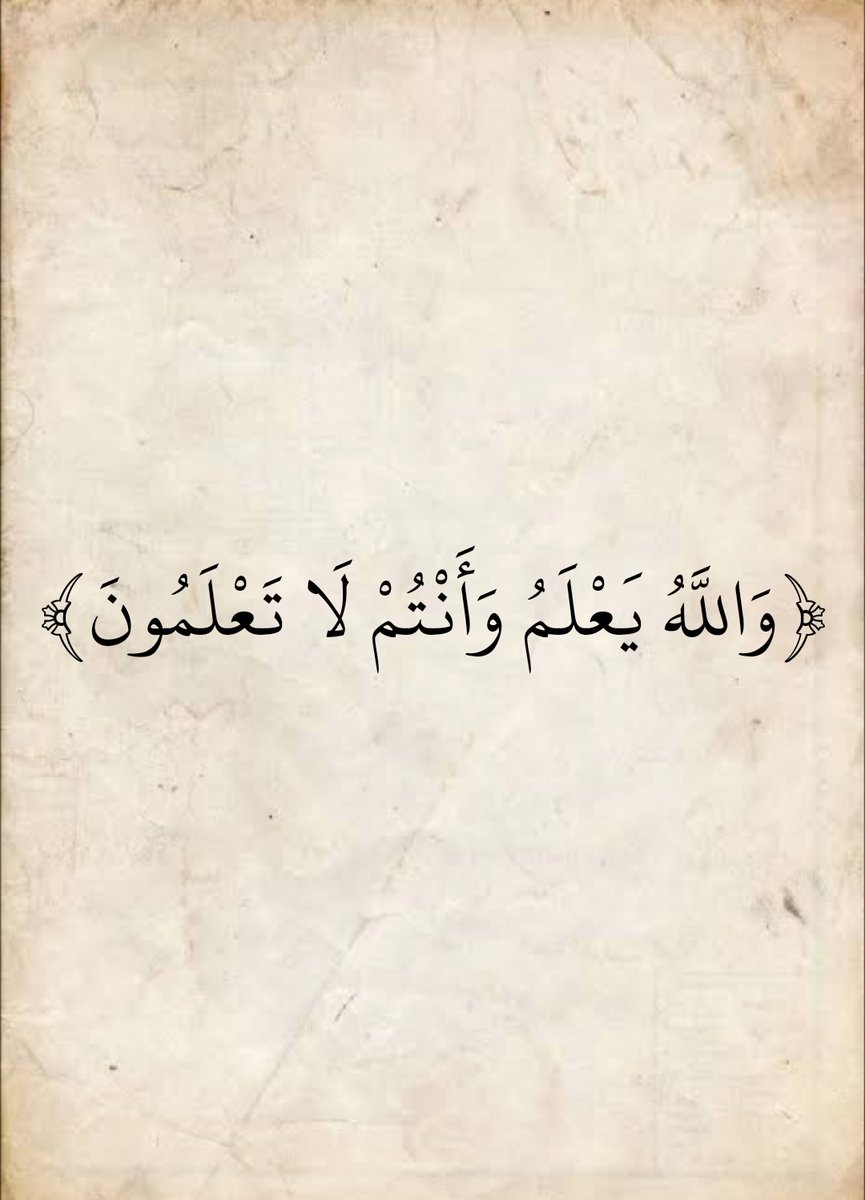 ﴿وَاللَّهُ يَعْلَمُ وَأَنْتُمْ لَا تَعْلَمُونَ﴾